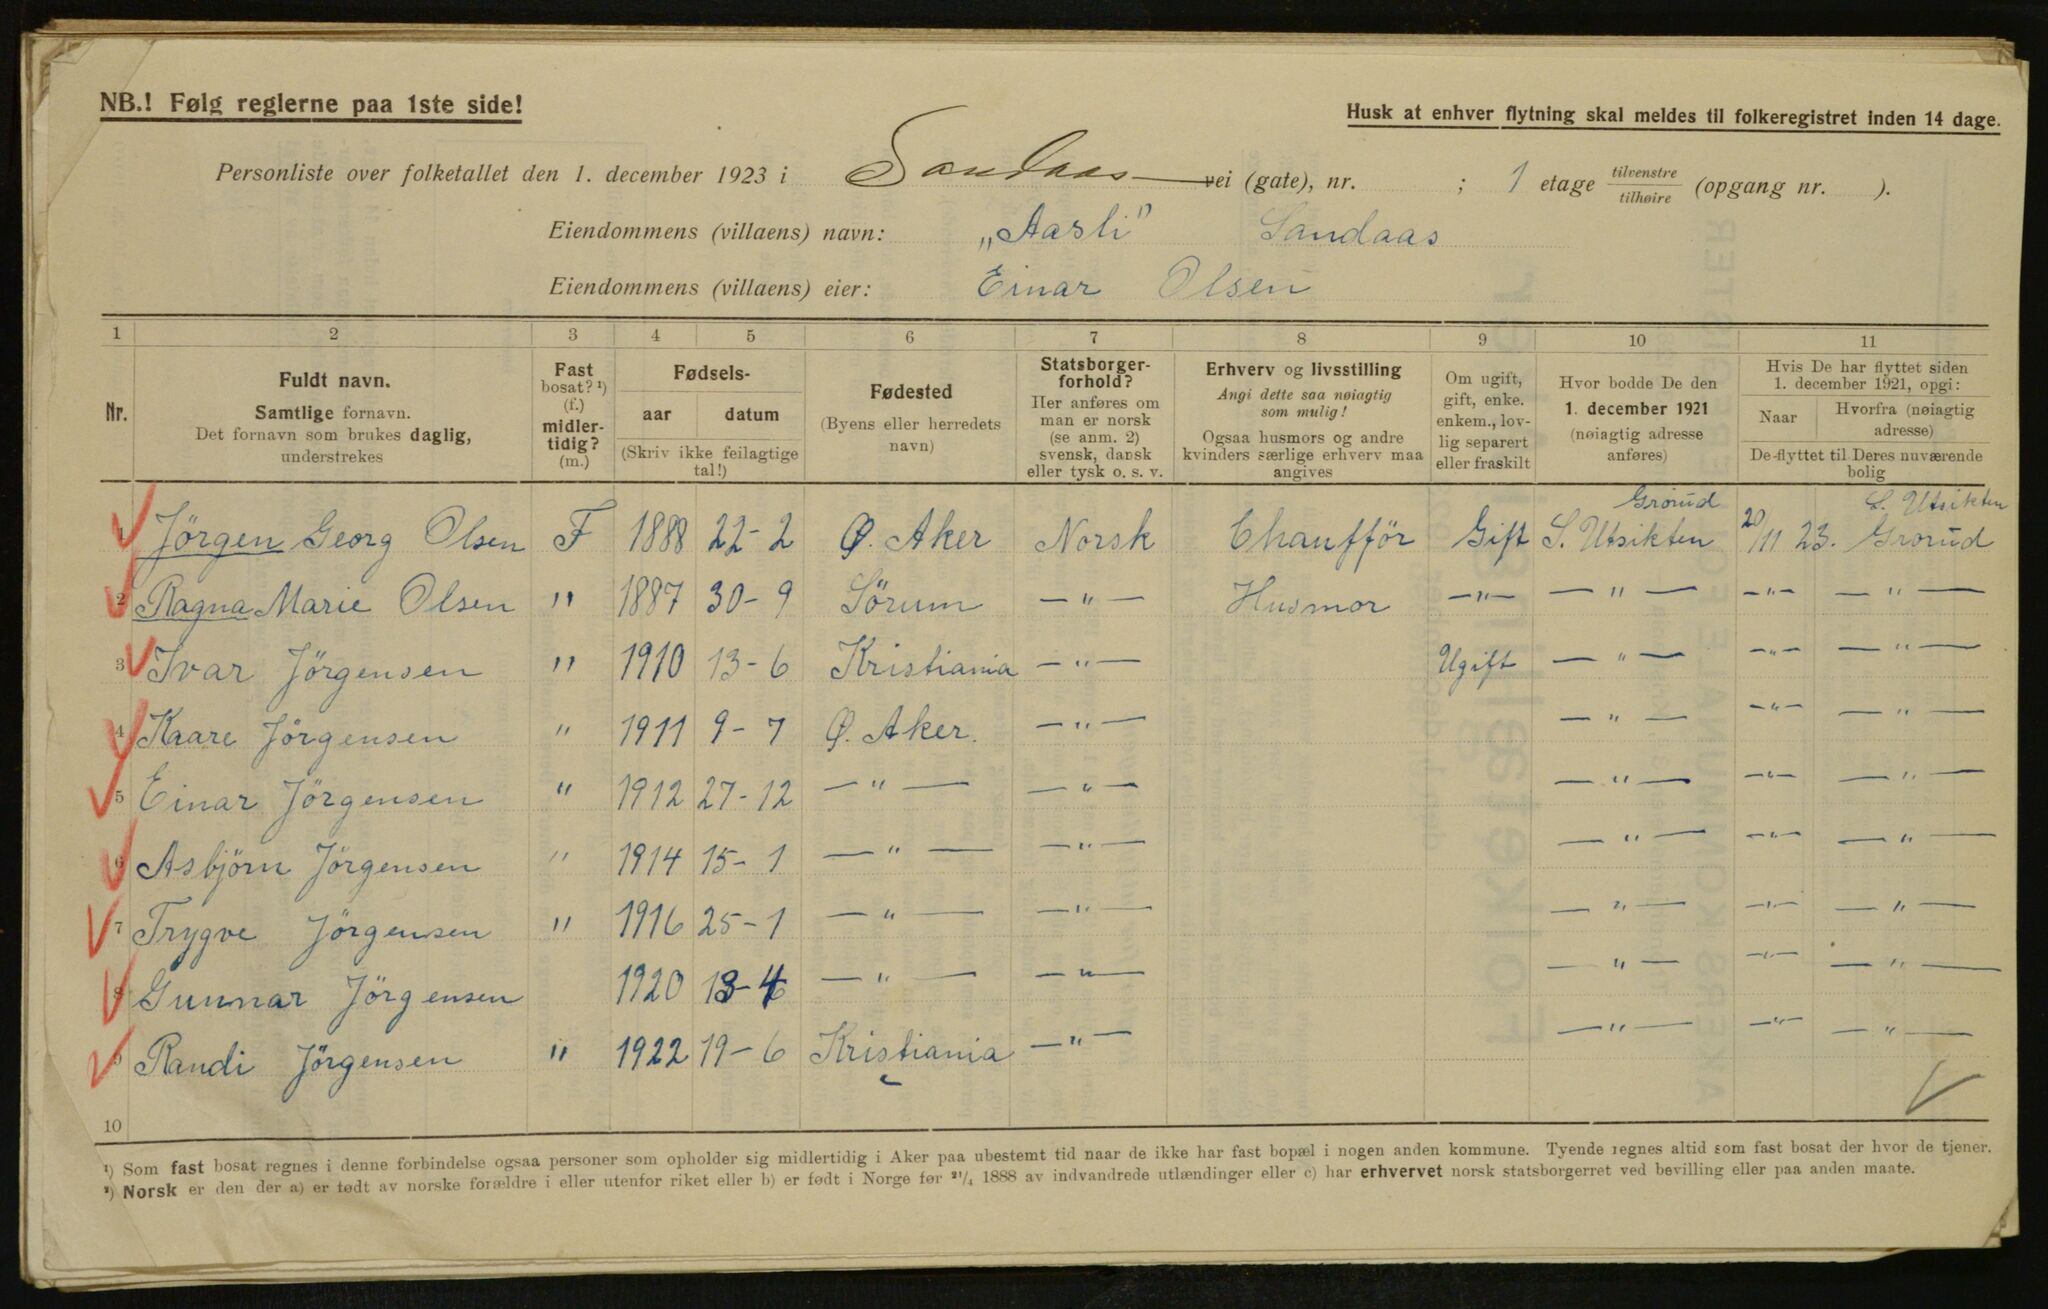 NB.! Følg reglerne paa 1ste side!
Husk at enhver flytning skal meldes til folkeregistret inden 14 dage.
Personliste over folketallet den 1. december 1923 i Sandaas vei (gate), nr. ; 1 etage tilvenstre/tilhøire (opgang nr. ).
Eiendommens (villaens) navn: „Aasli" Sandaas
Eiendommens (villaens) eier: Einar Olsen
1 2 3 4 5 6 7 8 9 10 11
Nr.
Fuldt navn.
Samtlige fornavn.
Det fornavn som brukes daglig,
understrekes
Fast
bosat? ¹)
(f.)
midler-
tidig?
(m.)
Fødsels-
aar datum
(Skriv ikke feilagtige
tal!)
Fødested
(Byens eller herredets
navn)
Statsborger-
forhold?
Her anføres om
man er norsk
(se anm. 2)
svensk, dansk
eller tysk o. s. v.
Erhverv og livsstilling
Angi dette saa nøiagtig
som mulig!
Ogsaa husmors og andre
kvinders særlige erhverv maa
angives
Om ugift,
gift, enke.
enkem., lov-
lig separert
eller fraskilt
Hvor bodde De den
1. december 1921
(nøiagtig adresse
anføres)
Hvis De har flyttet siden
1. december 1921, opgi:
Naar
Hvorfra (nøiagtig
adresse)
De flyttet til Deres nuværende
bolig
Grorud S. Utsikten
1 Jörgen Georg Olsen F 1888 22-2 Ø. Aker Norsk Chaufför Gift S. Utsikten 20/11 23. Grorud
2 Ragna Marie Olsen " 1887 30-9 Sörum — " — Husmor — " — — " — — " — — " —
3 Ivar Jörgensen " 1910 13-6 Kristiania — " — Ugift — " — — " — — " —
4 Kaare Jörgensen " 1911 9-7 Ø. Aker. — " — — " — — " — — " —
5 Einar Jörgensen " 1912 27-12 — " — — " — — " — — " — — " —
6 Asbjörn Jörgensen " 1914 15-1 — " — — " — — " — — " — — " —
7 Trygve Jörgensen " 1916 25-1 — " — — " — — " — — " — — " —
8 Gunnar Jörgensen 1920 13-4 — " — — " — — " — — " — — " —
9 Randi Jörgensen " 1922 19-6 Kristiania — " — — " — — " — — " —
10
¹) Som fast bosat regnes i denne forbindelse ogsaa personer som opholder sig midlertidig i Aker paa ubestemt tid naar de ikke har fast bopæl i nogen anden kommune. Tyende regnes altid som fast bosat der hvor de tjener.
²) Norsk er den der a) er født av norske forældre i eller utenfor riket eller b) er født i Norge før ²¹/₄ 1888 av indvandrede utlændinger eller c) har erhvervet norsk statsborgerret ved bevilling eller paa anden maate.